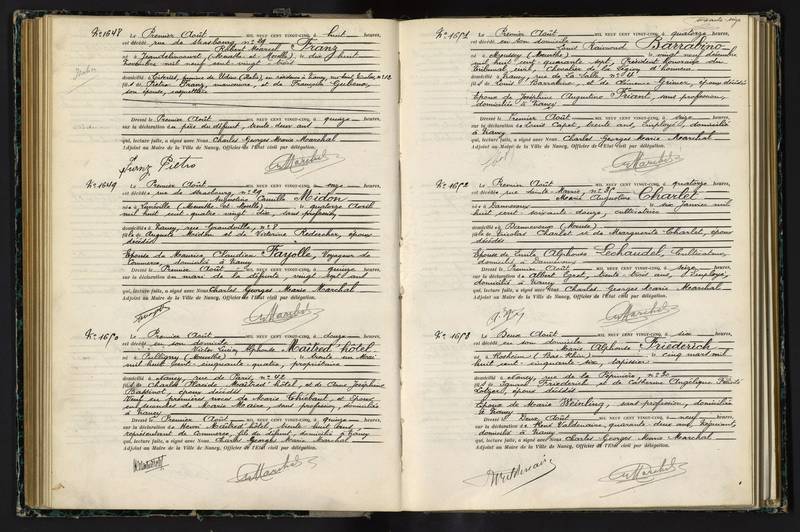 N° 1648
Le Premier Août MIL NEUF CENT VINGT-CINQ à huit heures,
est décédé rue de Strasbourg n° 29
Robert Marcel Franz
né à Jeandelincourt (Meurthe et Moselle) le dix huit
Novembre mil neuf cent vingt
fils de Pietro Franz, manoeuvre, et de
son épouse,
Dressé le Premier Août MIL NEUF CENT VINGT-CINQ à quinze heures,
sur la déclaration du père du défunt, trente deux ans
qui, lecture faite, a signé avec Nous Charles Georges Marie Marchal
Adjoint au Maire de la Ville de Nancy, Officier de l'Etat civil par délégation.
Franz Pietro
N° 1649
Le Premier Août MIL NEUF CENT VINGT-CINQ à onze heures,
est décédée rue de Strasbourg n° 29
Augustine Camille Midon
née à (Meurthe et Moselle) le quatorze Avril
mil huit cent quatre vingt dix, sans profession
domiciliée à Nancy, rue Grandville, n° 8
fille de Auguste Midon et de Victorine époux
décédés
Epouse de Maurice Claudien Farjolle, Voyageur de
Commerce, domicilié à Nancy
Dressé le Premier Août MIL NEUF CENT VINGT-CINQ à quinze heures,
qui, lecture faite, a signé avec Nous Charles Georges Marie Marchal
Adjoint au Maire de la Ville de Nancy, Officier de l'Etat civil par délégation.
N° 1650
Le Premier Août MIL NEUF CENT VINGT-CINQ à douze heures,
est décédé en son domicile
Alphonse Maitred'hôtel
né à Pulligny (Meurthe) le trente un Mai
mil huit cent cinquante quatre, propriétaire
domicilié à Nancy, rue de Paris, n° 42
fils de Charles Maitred'hôtel, et de Anne Joséphine
époux décédés
Veuf en premières noces de Marie Thiébaut et époux
en secondes de Marie sans profession, domiciliée
à Nancy
Dressé le Premier Août MIL NEUF CENT VINGT-CINQ à quinze heures,
sur la déclaration de Henri Maitred'hôtel, trente huit ans,
représentant de Commerce, fils du défunt, domicilié à Nancy
qui, lecture faite, a signé avec Nous Charles Georges Marie Marchal
Adjoint au Maire de la Ville de Nancy, Officier de l'Etat civil par délégation.
N° 1651
Le Premier Août MIL NEUF CENT VINGT-CINQ à quatorze heures,
est décédé en son domicile
Louis Raimond Barrabino
né à (Meurthe) le vingt neuf
mil huit cent quarante sept, Président honoraire du
Tribunal civil, Chevalier de la Légion d'honneur
domicilié à Nancy, rue de La Salle, n° 4
fils de Louis Barrabino et de époux décédés
Epoux de Joséphine Augustine Friant, sans profession,
domiciliée à Nancy
Dressé le Premier Août MIL NEUF CENT VINGT-CINQ à seize heures,
sur la déclaration de Louis Capel, trente ans, Employé, domicilié
à Nancy
qui, lecture faite, a signé avec Nous Charles Georges Marie Marchal
Adjoint au Maire de la Ville de Nancy, Officier de l'Etat civil par délégation.
N° 1652
Le Premier Août MIL NEUF CENT VINGT-CINQ à quatorze heures,
est décédée rue Sainte-Marie
Marie Augustine Charlet
née à Dannevoux le six Janvier mil
huit cent soixante douze, cultivatrice
domiciliée à Dannevoux (Meuse)
fille de Nicolas Charlet et de Marguerite Charlet, époux
décédés
Epouse de Emile Alphonse Lechaudel, Cultivateur,
domicilié à Dannevoux
Dressé le Premier Août MIL NEUF CENT VINGT-CINQ à seize heures,
sur la déclaration de Albert trente trois ans, Employé,
domicilié à Nancy
qui, lecture faite, a signé avec Nous Charles Georges Marie Marchal
Adjoint au Maire de la Ville de Nancy, Officier de l'Etat civil par délégation.
N° 1653
Le Deux Août MIL NEUF CENT VINGT-CINQ à six heures,
est décédé en son domicile
Marie Alphonse Friederich
né à Rosheim (Bas-Rhin) le cinq mars mil
huit cent cinquante six, tapissier
domicilié à Nancy, rue de la Pépinière, n° 30
fils de Ignace Friederich et de Catherine Angélique
époux décédés
Epoux de Marie sans profession, domiciliée
à Nancy
Dressé le Deux Août MIL NEUF CENT VINGT-CINQ à neuf heures,
sur la déclaration de René Valdenaire, quarante deux ans,
domicilié à Nancy
qui, lecture faite, a signé avec Nous Charles Georges Marie Marchal
Adjoint au Maire de la Ville de Nancy, Officier de l'Etat civil par délégation.